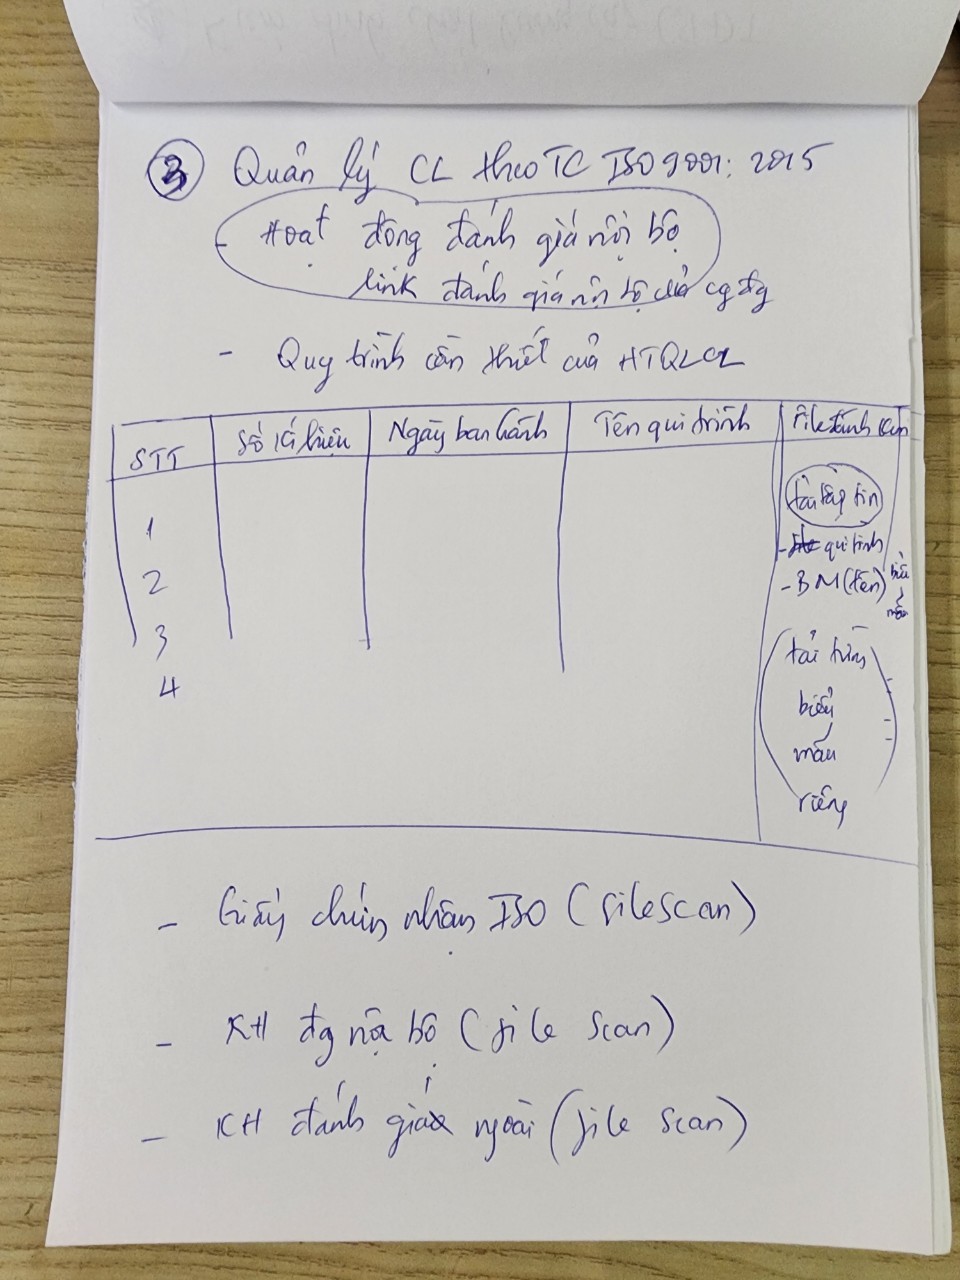 ③ Quản lý CL theo TC ISO 9001: 2015
- Hoạt động đánh giá nội bộ
link đánh giá nội bộ của cg đg
- Quy trình cần thiết của HTQLCL
STT Số kí hiệu Ngày ban hành Tên qui trình File đính kèm
1
2
3
4
tải tập tin
- qui trình
- BM (tên) biểu mẫu
tải từng
biểu
mẫu
riêng
- Giấy chứng nhận ISO (file scan)
- KH đg nội bộ (file scan)
- KH đánh giá ngoài (file scan)